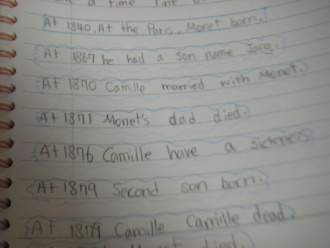 a time line
At 1840, At the Paris, Monet born.
At 1867 he had a son name Jang.
At 1870 Camille married with Monet.
At 1871 Monet's dad died.
At 1876 Camille have a sickness
At 1879 Second son born.
At 1879 Camille Camille dead
Monet died.